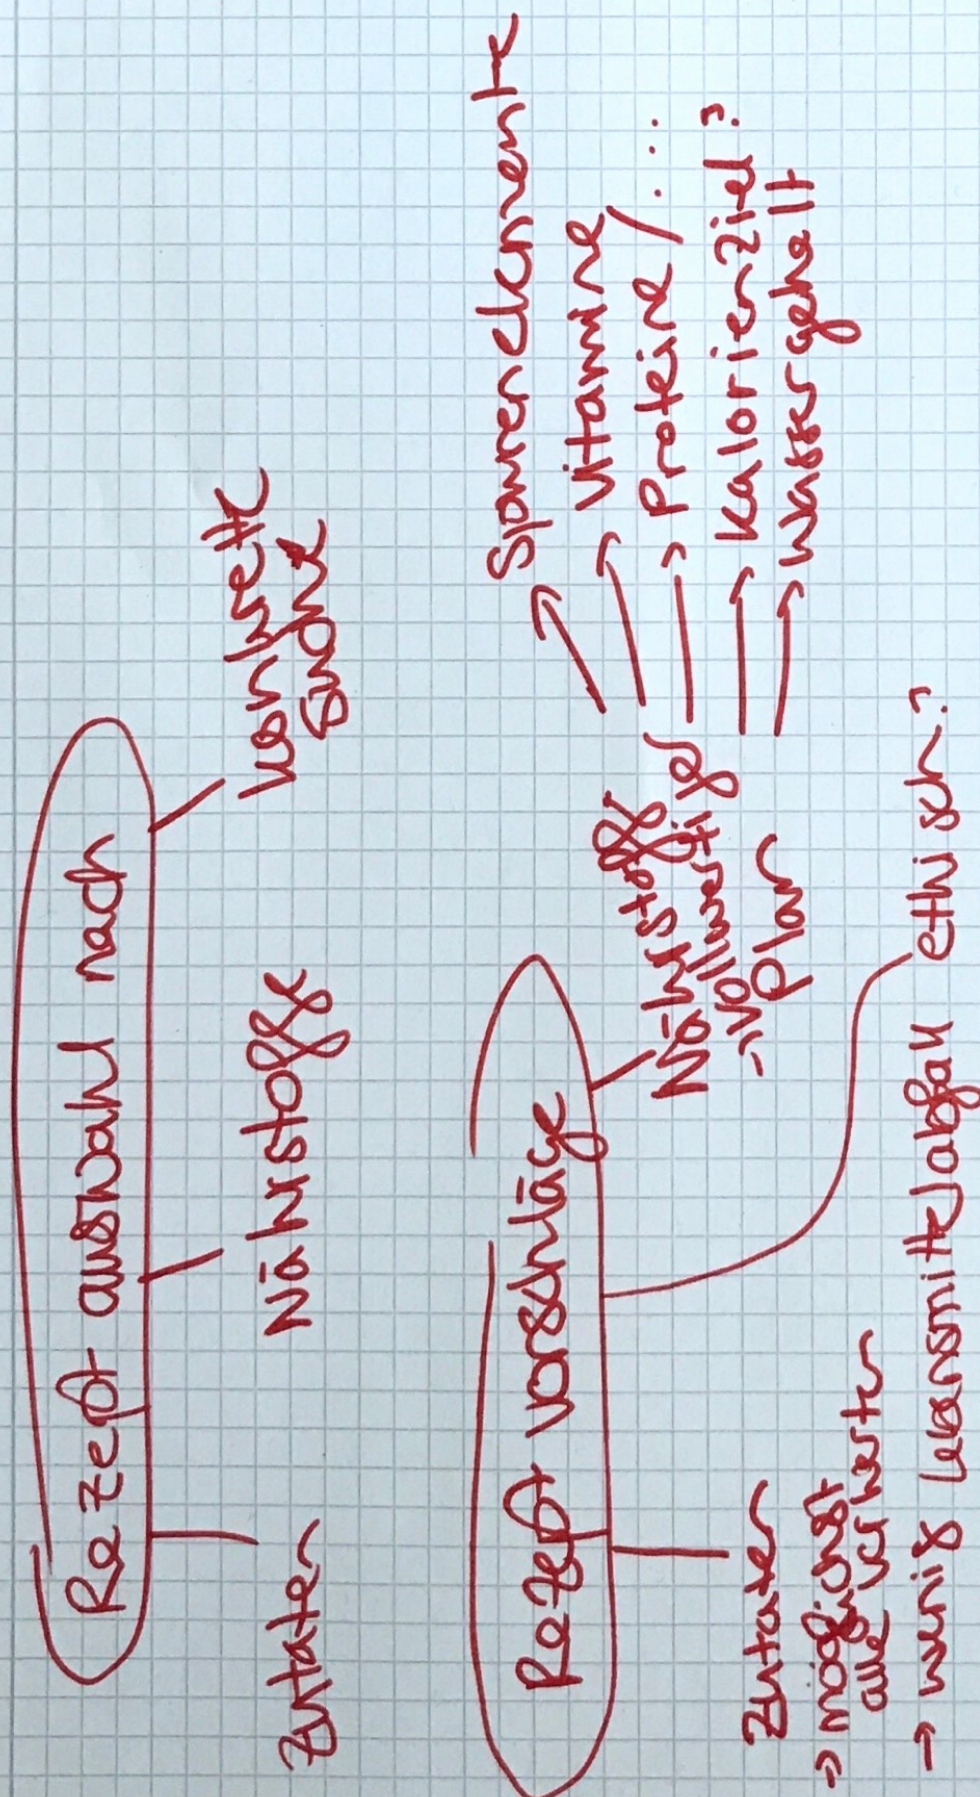 Rezept auswahl nach
Zutaten
Nährstoffe
konkrete
Suche
Rezept vorschläge
Zutaten
→ möglichst
alle verwerten
→ wenig Lebensmittelabfall
ethisch?
Nährstoff
-vollwertiger
Plan
→ Spurenelemente
→ Vitamine
→ Proteine / ...
→ Kalorienziel?
→ Wassergehalt